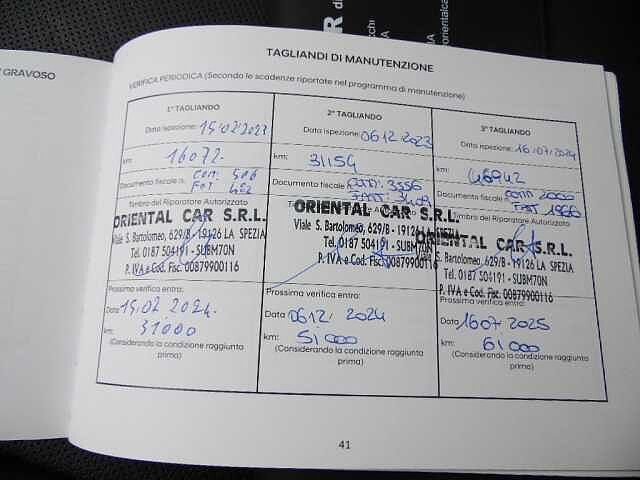 R di
cchi
IA
orientalca
GRAVOSO
TAGLIANDI DI MANUTENZIONE
VERIFICA PERIODICA (Secondo le scadenze riportate nel programma di manutenzione)
1° TAGLIANDO
Data ispezione: 15/02/2023
km: 16072.
Documento fiscale n. COM. 506
FAT 452
Timbro del Riparatore Autorizzato
ORIENTAL CAR S.R.L.
Viale S. Bartolomeo, 629/B - 19126 LA SPEZIA
Tel. 0187 504191 - SUBM70N
P. IVA e Cod. Fisc. 00879900116
Prossima verifica entro:
Data 15.02 2024.
km: 31000
(Considerando la condizione raggiunta
prima)
2° TAGLIANDO
Data ispezione: 06 12 2023
km: 31154
Documento fiscale n. COM. 3556
FATT. 3409
Timbro del Riparatore Autorizzato
ORIENTAL CAR S.R.L.
Viale S. Bartolomeo, 629/B - 19126 LA SPEZIA
Tel. 0187 504191 - SUBM70N
P. IVA e Cod. Fisc. 00879900116
Prossima verifica entro:
Data 06 12/ 2024
km: 51000
(Considerando la condizione raggiunta
prima)
3° TAGLIANDO
Data ispezione: 16/07/2024
km: 46942
Documento fiscale n. COM 2000
FATT 1966
Timbro del Riparatore Autorizzato
ORIENTAL CAR S.R.L.
S. Bartolomeo, 629/B - 19126 LA SPEZIA
Tel. 0187 504191 - SUBM70N
P. IVA e Cod. Fisc. 00879900116
Prossima verifica entro:
Data 16 07 2025
km: 61000
(Considerando la condizione raggiunta
prima)
41